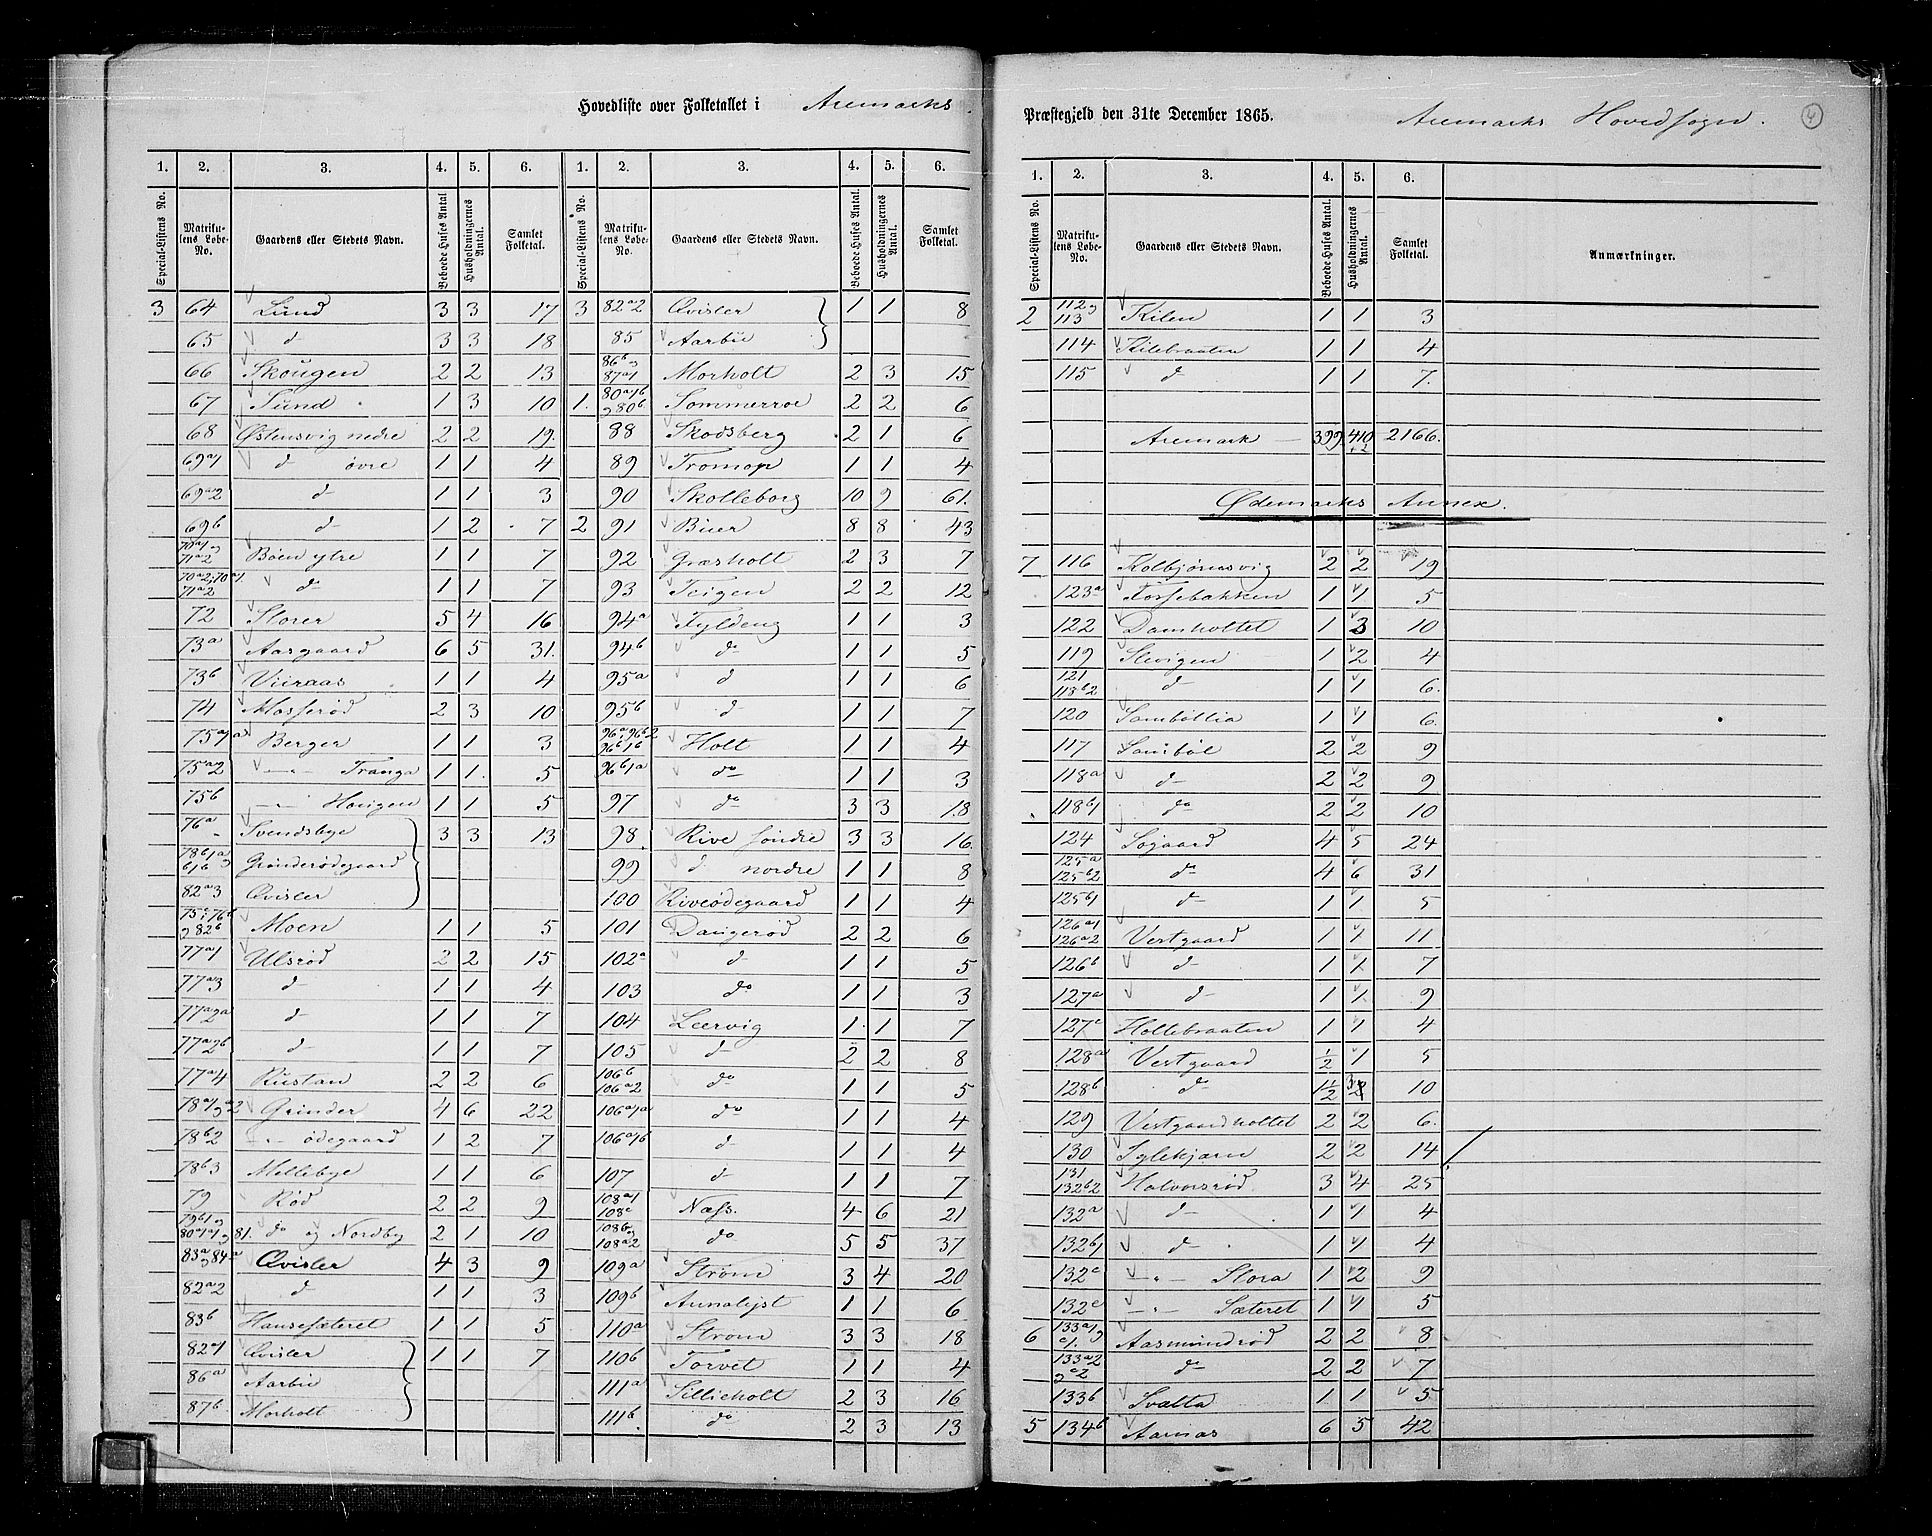 Hovedliste over Folketallet i Aremarks
1. 2. 3. 4. 5. 6. 1. 2. 3. 4. 5. 6.
Special-Listens No. Matrikulens Løbe-No. Gaardens eller Stedets Navn. Beboede Huses Antal. Husholdningernes Antal. Samlet Folketal. Special-Listens No. Matrikulens Løbe-No. Gaardens eller Stedets Navn. Beboede Huses Antal. Husholdningernes Antal. Samlet Folketal.
3 64 Lund 3 3 17 3 82a2 Qvisler 1 1 8
65 d 3 3 18 85 Aarbu
66 Skougen 2 2 13 86b og 87a1 Morholt 2 3 15
67 Sund 1 3 10 1. 80a1b og 80b Sommerroe 2 2 6
68 Østensvig nedre 2 2 19. 88 Skodsberg 2 1 6
69a1 d øvre 1 1 4 89 Tromop 1 1 4
69a2 d 1 1 3 90 Skolleborg 10 9 61.
69b d 1 2 7 2 91 Buer 8 8 43
70a1 og 71a2 Bøen ytre 1 1 7 92 Græsholt 2 3 7
70a2; 70a1 71a2 d 1 1 7 93 Teigen 2 2 12
72 Storer 5 4 16 94a Fyldeng 1 1 3
73a Aasgaard 6 5 31. 94b do 1 1 5
73b Viiraas 1 1 4 95a d 1 1 6
74 Mosserød 2 3 10 95b d 1 1 7
75a1a Berger 1 1 3 96a; 96b2 96b1b Holt 1 1 4
75a2 —"— Tranga 1 1. 5 96b1a do 1 1 3
75b —"— Haugen 1 1 5 97 do 3 3 18
76a Svendsbye 3 3 13 98. Rive søndre 3 3 16
78b1a og b1b Grønderødegaard 99 d nordre 1 1 8
82a3 Qvisler 100 Riveødegaard 1 1 4
75c; 76b og 82b Moen 1 1 5 101 Dangerød 2 2 6
77a1 Ulsrød 2 2 15 102a d 1 1 5
77a3 d 1 1 4 103 do 1 1 3
77a2a d 1 1 7 104 Leervig 1 1 7
77a2b d 1 1 7 105 d 2 2 8
77a4 Rustan 2 2 6 106b 106a2 do 1 1 5
78a1 og a2 Grinder 4 6 22 106a1a do 1 1 4
78b2 —"— ødegaard 1 2 7 106a1b d 1 1 4
78b3 Mellebye 1 1 6 107 d 1 1 7
79 Rød 2 2 9 108a1 108c Næss. 4 6 21
79b1 og 80a1a1 og 81. do og Nordby 2 1 10 108b og 108a2 do 5 5 37
83a og 84a Qvisler 4 3 9 109a Strøm 3 4 20
82a2 d 1 1 3 109b Annalyst 1 1 6
83b Hansesæteret 1 1 5 110a Strøm 3 3 18
82a1 Qvisler 1 1 7 110b Torvet 1 1 4
86a Aarbu 111a Sillieholt 2 3 16
87b. Morholt 111b. do 2 3 13
Præstegjeld den 31te December 1865. Aremarks Hovedsogn. 4
1. 2. 3. 4. 5. 6.
Special-Listens No. Matrikulens Løbe-No. Gaardens eller Stedets Navn. Beboede Huses Antal. Husholdningernes Antal. Samlet Folketal. Anmærkninger.
2 112 og 113 Kilen 1 1 3
114 Kilebraaten 1 1 4
115 d 1 1 7.
Aremark — 399. 410 +2 2166.
Ødemarks Annex.
7 116 Kolbjørnsvig 2 2 19
123a Fossebakken 1 1 5
122 Damholtet 1 3 10
119 Slevigen 1 2 4
121 118b2 d 1 1 6.
120 Sambøllia 1 1 6.
117 Sambøl 2 2 9
118a d 2 2 9
118b1 do 2 2 10
124 Søgaard 4 5 24
125a 125b2 do 4 6 31
125b1 d 1 1 5
126a1 126a2 Vestgaard 1 1 11
126b d 1 1 7
127a d 1 1. 9
127c Hollebraaten 1 1 4
128a Vestgaard ½ 1 5
128b do 1½ 3 10
129 Vestgaardholtet 2 2 6.
130 Sylekjærn 2 2 14
131 132b2 Halvorsrød 3 4 25
132a d 1 1 4
132b1 d 1 1 4
132c —"— Slora 1 2 9
132e —"— Sæteret 1 1 5
6 133a1 og c1. Aasmundrød 2 2 8
133a2 og a2 do 2 2 7
133b Svalta 1 1 5
5 134b Aarnæs 6 5 42